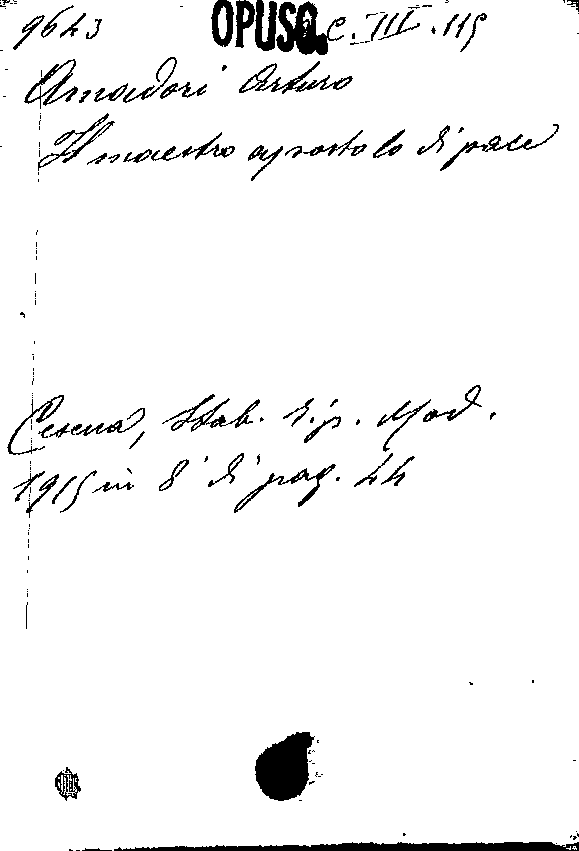 9643 OPUSC. C. III. 115
Amadori Arturo
Il maestro apostolo di pace
Cesena, Stab. Tip. Mod.
1915 in 8° di pag. 24